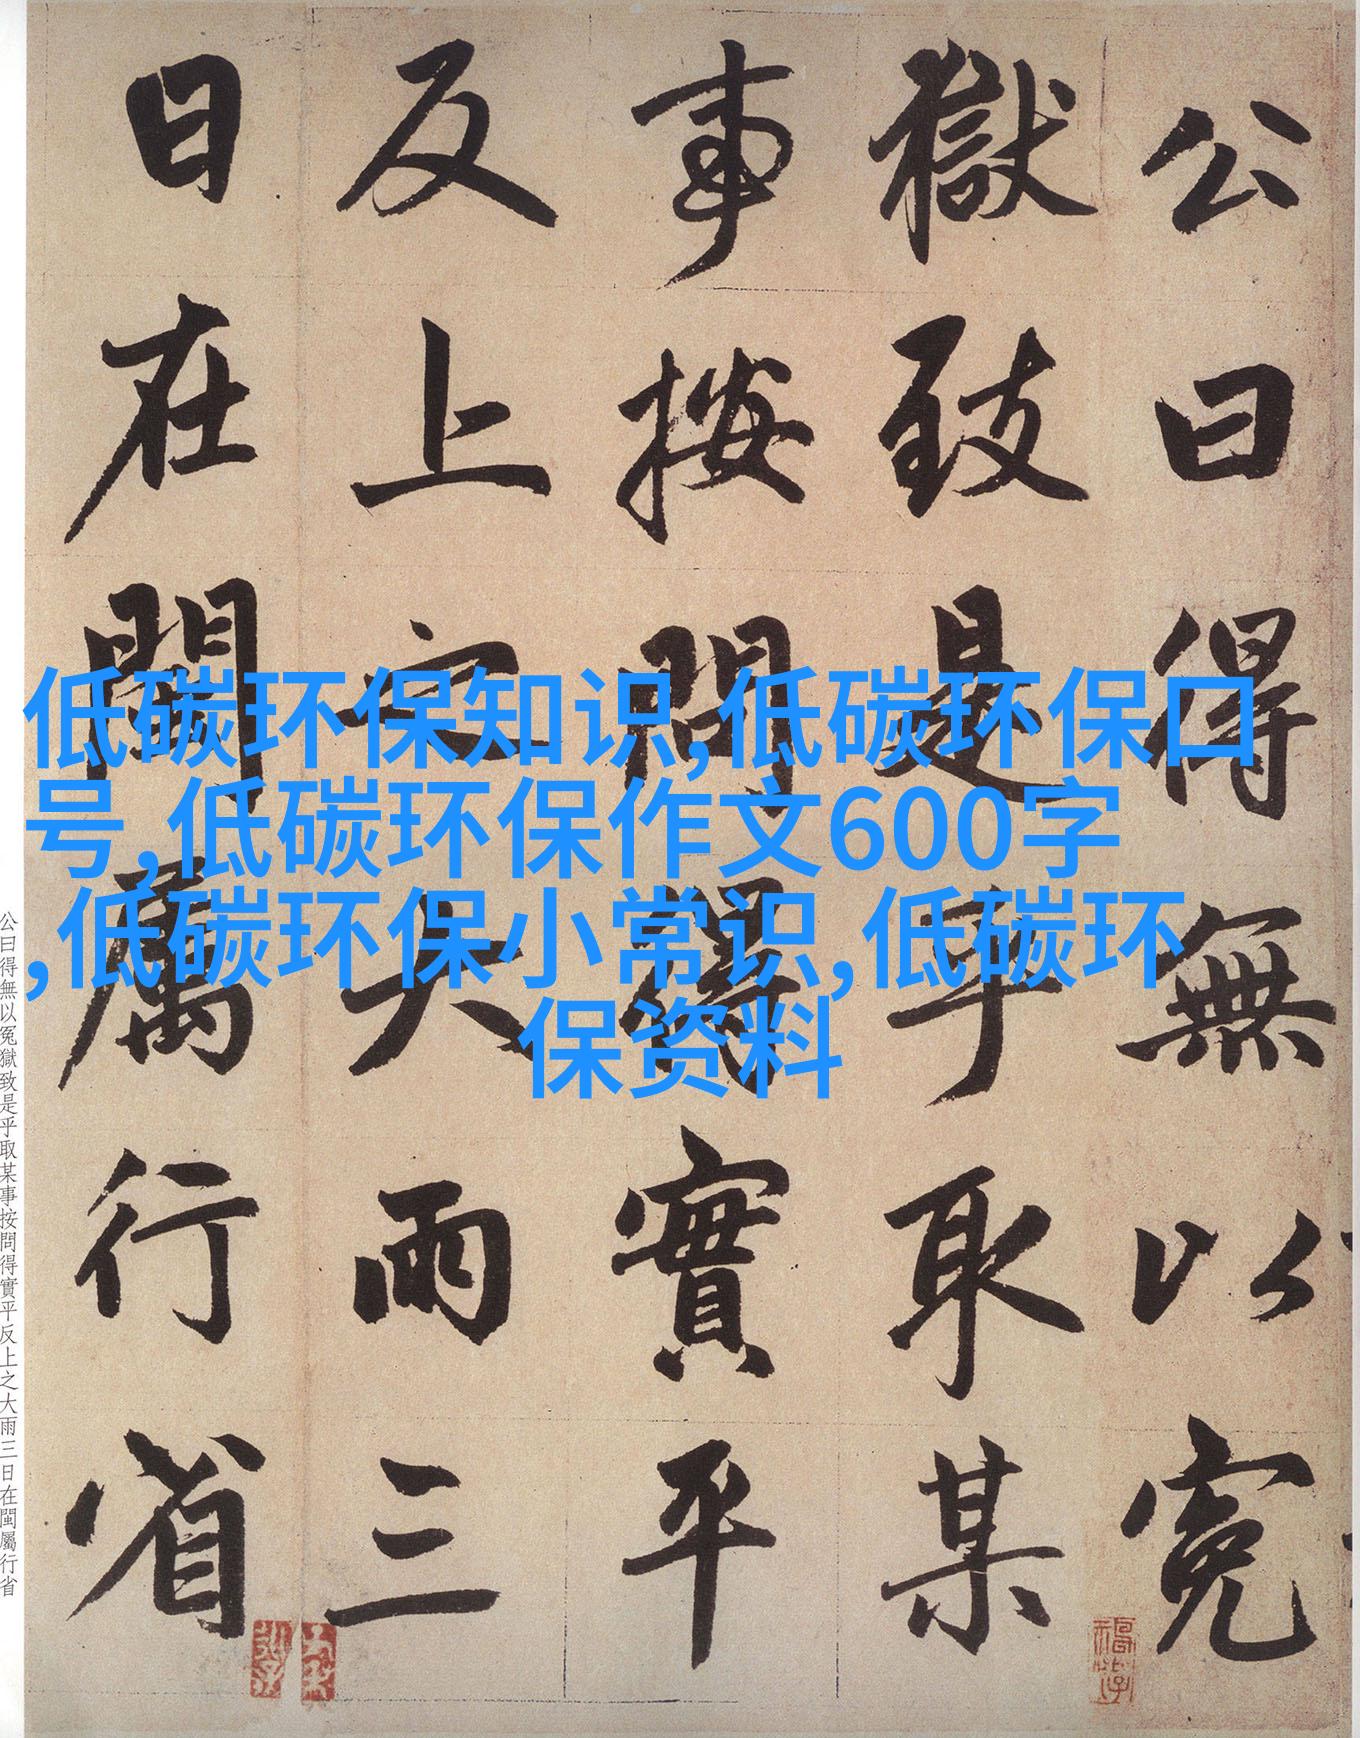 公曰得無以冤
獄致是乎取某
事按問得實平
反上之大雨三
日在閩屬行省
低碳环保知识,低碳环保口
号,低碳环保作文600字
,低碳环保小常识,低碳环
保资料
公曰得無以冤獄致是乎取某事按問得實平反上之大雨三日在閩屬行省